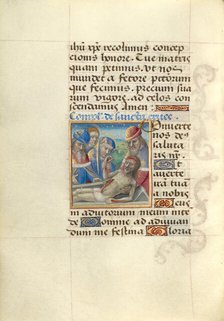 ihũ xp̃e recolimus concep
cionis honore. Tue matris
quam petimus. Vt nos
mundet a fetore pctorum
que fecimus. precium suum
rus vigore. ad celos con
scendamus Amen
de sancta cruce
Onuerte
nos deus
saluta
ris nr̃
Et
auerte
ira tua
a nobis
Deus
in adiutorium meum inte
de Domine ad adiuuan
dum me festina Gloria